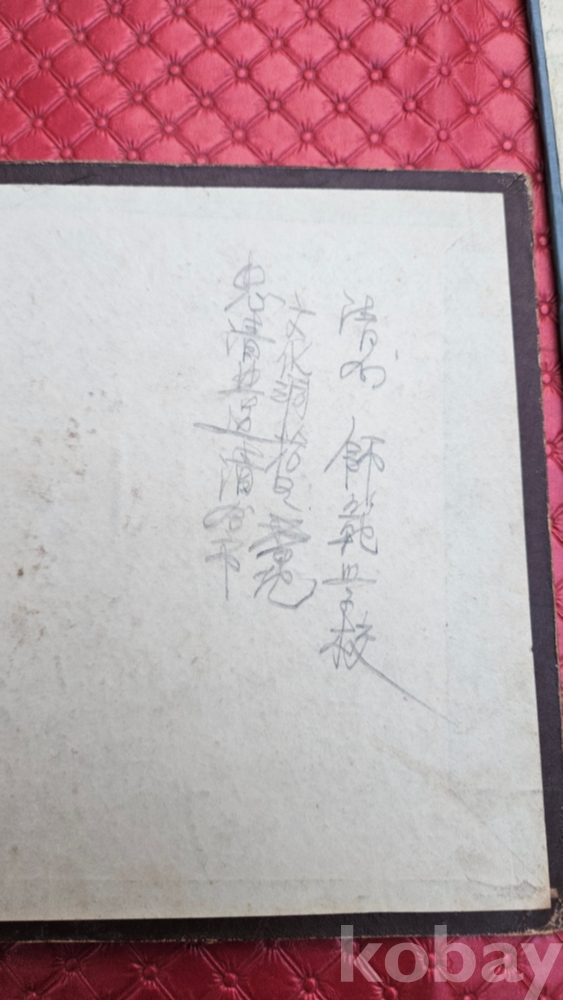 清州 師範学校
文化洞
忠清北道清州市
kobay